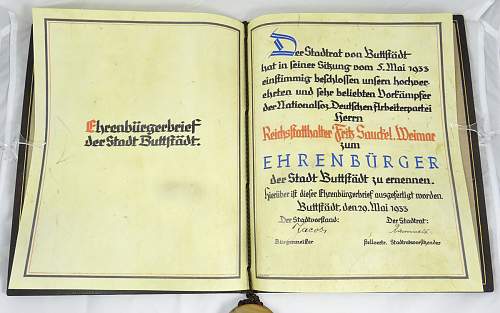 Ehrenbürgerbrief
der Stadt Buttstädt.
Der Stadtrat von Buttstädt
hat in seiner Sitzung vom 5. Mai 1933
einstimmig beschlossen unsern hochver-
ehrten und sehr beliebten Vorkämpfer
der Nationalsoz. Deutschen Arbeiterpartei
Herrn
Reichsstatthalter Fritz Sauckel, Weimar
zum
EHRENBÜRGER
der Stadt Buttstädt zu ernennen.
Hierüber ist dieser Ehrenbürgerbrief ausgefertigt worden.
Buttstädt, den 29. Mai 1933
Der Stadtvorstand: Der Stadtrat:
Jacobs
Bürgermeister stellvertr. Stadtratsvorsitzender